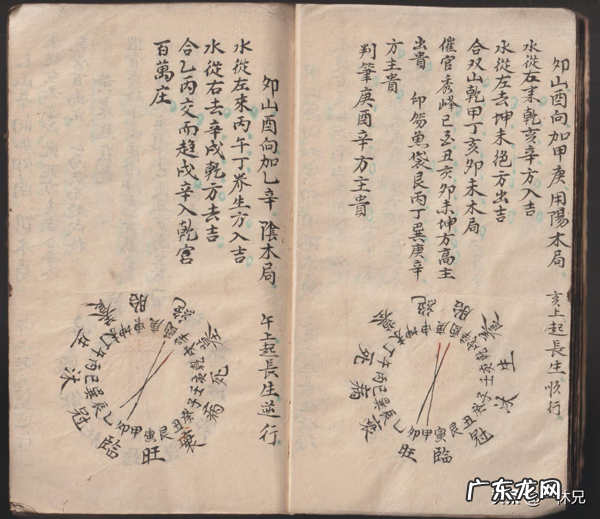 卯山酉向加甲庚用陽木局 亥上起長生順行
水從左来乾亥辛方入吉
水從左去坤未絕方出吉
合双山乾甲丁亥卯未木局
催官秀峰巳丑亥卯未坤方高主
出貴 印笏魚袋艮丙丁巽庚辛
方主貴
判筆庚酉辛方主貴
胎
養
生
沐
冠
臨
旺
衰
病
死
卯山酉向加乙辛陰木局 午上起長生逆行
水從左來丙午丁养生方入吉
水從右去辛戌乾方去吉
合乙丙交而趨戌辛入乾宮
百萬庄
胎
養
生
沐
冠
臨
旺
衰
病
死
广东龙网
休兄